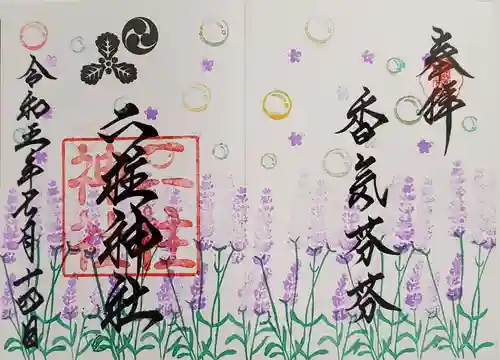 奉拝
香気芬芬
二柱神社
二柱
神社
令和五年七月十四日